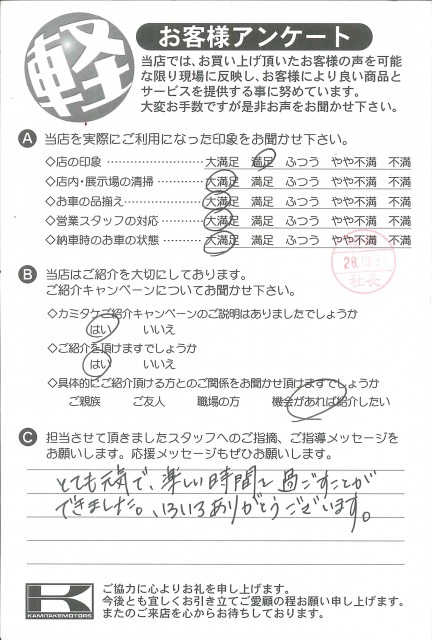 軽
お客様アンケート
当店では、お買い上げ頂いたお客様の声を可能
な限り現場に反映し、お客様により良い商品と
サービスを提供する事に努めています。
大変お手数ですが是非お声をお聞かせ下さい。
A 当店を実際にご利用になった印象をお聞かせ下さい。
◇店の印象 大満足 満足 ふつう やや不満 不満
◇店内・展示場の清掃 大満足 満足 ふつう やや不満 不満
◇お車の品揃え 大満足 満足 ふつう やや不満 不満
◇営業スタッフの対応 大満足 満足 ふつう やや不満 不満
◇納車時のお車の状態 大満足 満足 ふつう やや不満 不満
社長
B 当店はご紹介を大切にしてあります。
ご紹介キャンペーンについてお聞かせ下さい。
◇カミタケご紹介キャンペーンのご説明はありましたでしょうか
はい いいえ
◇ご紹介を頂けますでしょうか
はい いいえ
◇具体的にご紹介頂ける方とのご関係をお聞かせ頂けますでしょうか
ご親族 ご友人 職場の方 機会があれば紹介したい
C 担当させて頂きましたスタッフへのご指摘、ご指導メッセージを
お願いします。応援メッセージもぜひお願いします。
とても元気で、楽しい時間を過ごすことが
できました。いろいろありがとうございます。
K
KAMITAKEMOTORS
ご協力に心よりお礼を申し上げます。
今後とも宜しくお引き立てご愛顧の程お願い申し上げます。
またのご来店を心からお待ちしております。